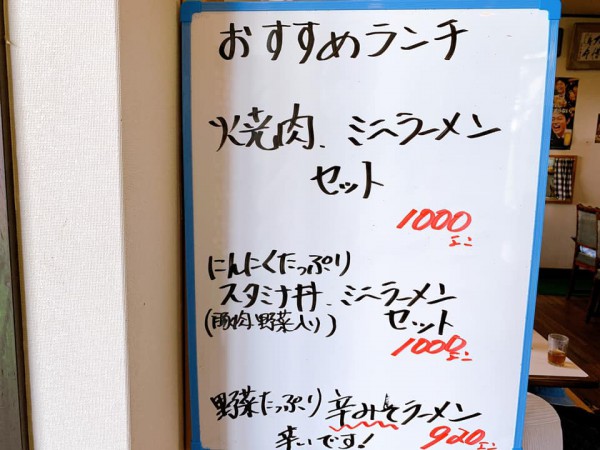 おすすめランチ
焼肉、ミニラーメン
セット
1000
エン
にんにくたっぷり
スタミナ丼、ミニラーメン
(豚肉・野菜入り) セット
1000エン
野菜たっぷり 辛みそラーメン
辛いです! 920エン